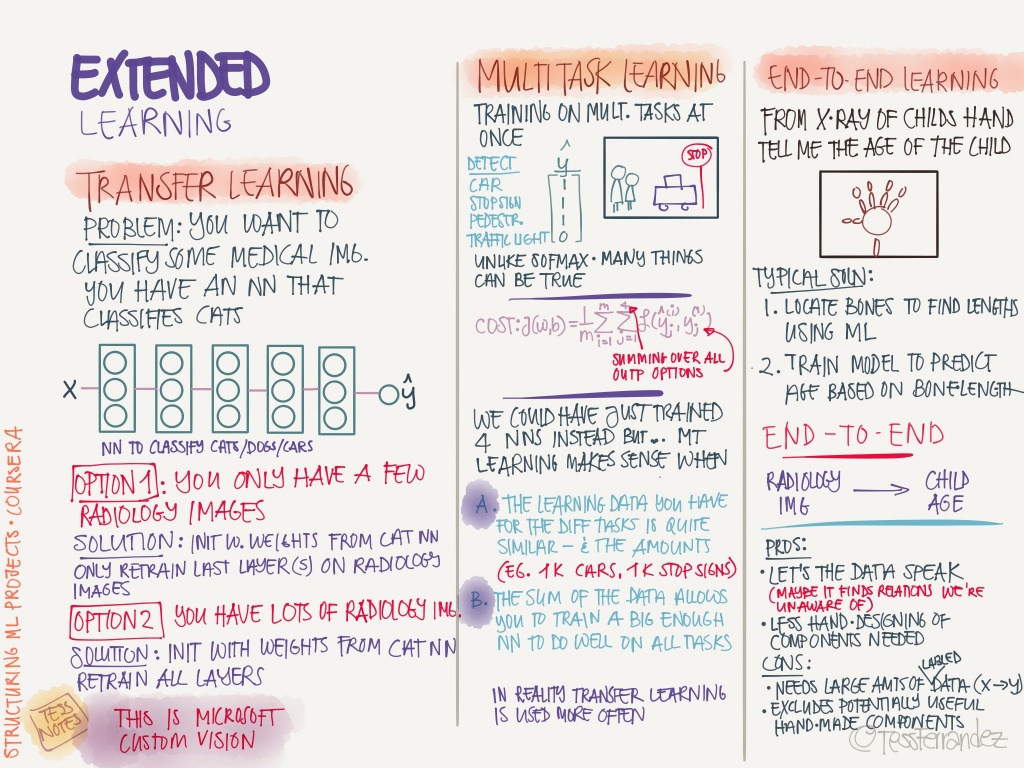 EXTENDED
LEARNING
TRANSFER LEARNING
PROBLEM: YOU WANT TO
CLASSIFY SOME MEDICAL IMG.
YOU HAVE AN NN THAT
CLASSIFIES CATS
X
ŷ
NN TO CLASSIFY CATS/DOGS/CARS
OPTION 1: YOU ONLY HAVE A FEW
RADIOLOGY IMAGES
SOLUTION: INIT W. WEIGHTS FROM CAT NN
ONLY RETRAIN LAST LAYER(S) ON RADIOLOGY
IMAGES
OPTION 2 YOU HAVE LOTS OF RADIOLOGY IMG.
SOLUTION: INIT WITH WEIGHTS FROM CAT NN
RETRAIN ALL LAYERS
THIS IS MICROSOFT
CUSTOM VISION
TESS
NOTES
STRUCTURING ML PROJECTS · COURSERA
MULTI TASK LEARNING
TRAINING ON MULT. TASKS AT
ONCE
DETECT
CAR
STOPSIGN
PEDESTR.
TRAFFIC LIGHT
ŷ
1
1
1
0
STOP
UNLIKE SOFMAX · MANY THINGS
CAN BE TRUE
COST: J(w,b) = 1/m Σ_{i=1}^{m} Σ_{j=1}^{4} ℒ(ŷ_j^{(i)}, y_j^{(i)})
SUMMING OVER ALL
OUTP OPTIONS
WE COULD HAVE JUST TRAINED
4 NNS INSTEAD BUT... MT
LEARNING MAKES SENSE WHEN
A. THE LEARNING DATA YOU HAVE
FOR THE DIFF TASKS IS QUITE
SIMILAR – & THE AMOUNTS
(EG. 1K CARS, 1K STOP SIGNS)
B. THE SUM OF THE DATA ALLOWS
YOU TO TRAIN A BIG ENOUGH
NN TO DO WELL ON ALL TASKS
IN REALITY TRANSFER LEARNING
IS USED MORE OFTEN
END-TO-END LEARNING
FROM X-RAY OF CHILDS HAND
TELL ME THE AGE OF THE CHILD
TYPICAL SOLN:
1. LOCATE BONES TO FIND LENGTHS
USING ML
2. TRAIN MODEL TO PREDICT
AGE BASED ON BONELENGTH
END-TO-END
RADIOLOGY
IMG
→
CHILD
AGE
PROS:
• LET'S THE DATA SPEAK
(MAYBE IT FINDS RELATIONS WE'RE
UNAWARE OF)
• LESS HAND-DESIGNING OF
COMPONENTS NEEDED
CONS:
LABLED
• NEEDS LARGE AMTS OF DATA (X→Y)
• EXCLUDES POTENTIALLY USEFUL
HAND-MADE COMPONENTS
©TessFerrandez